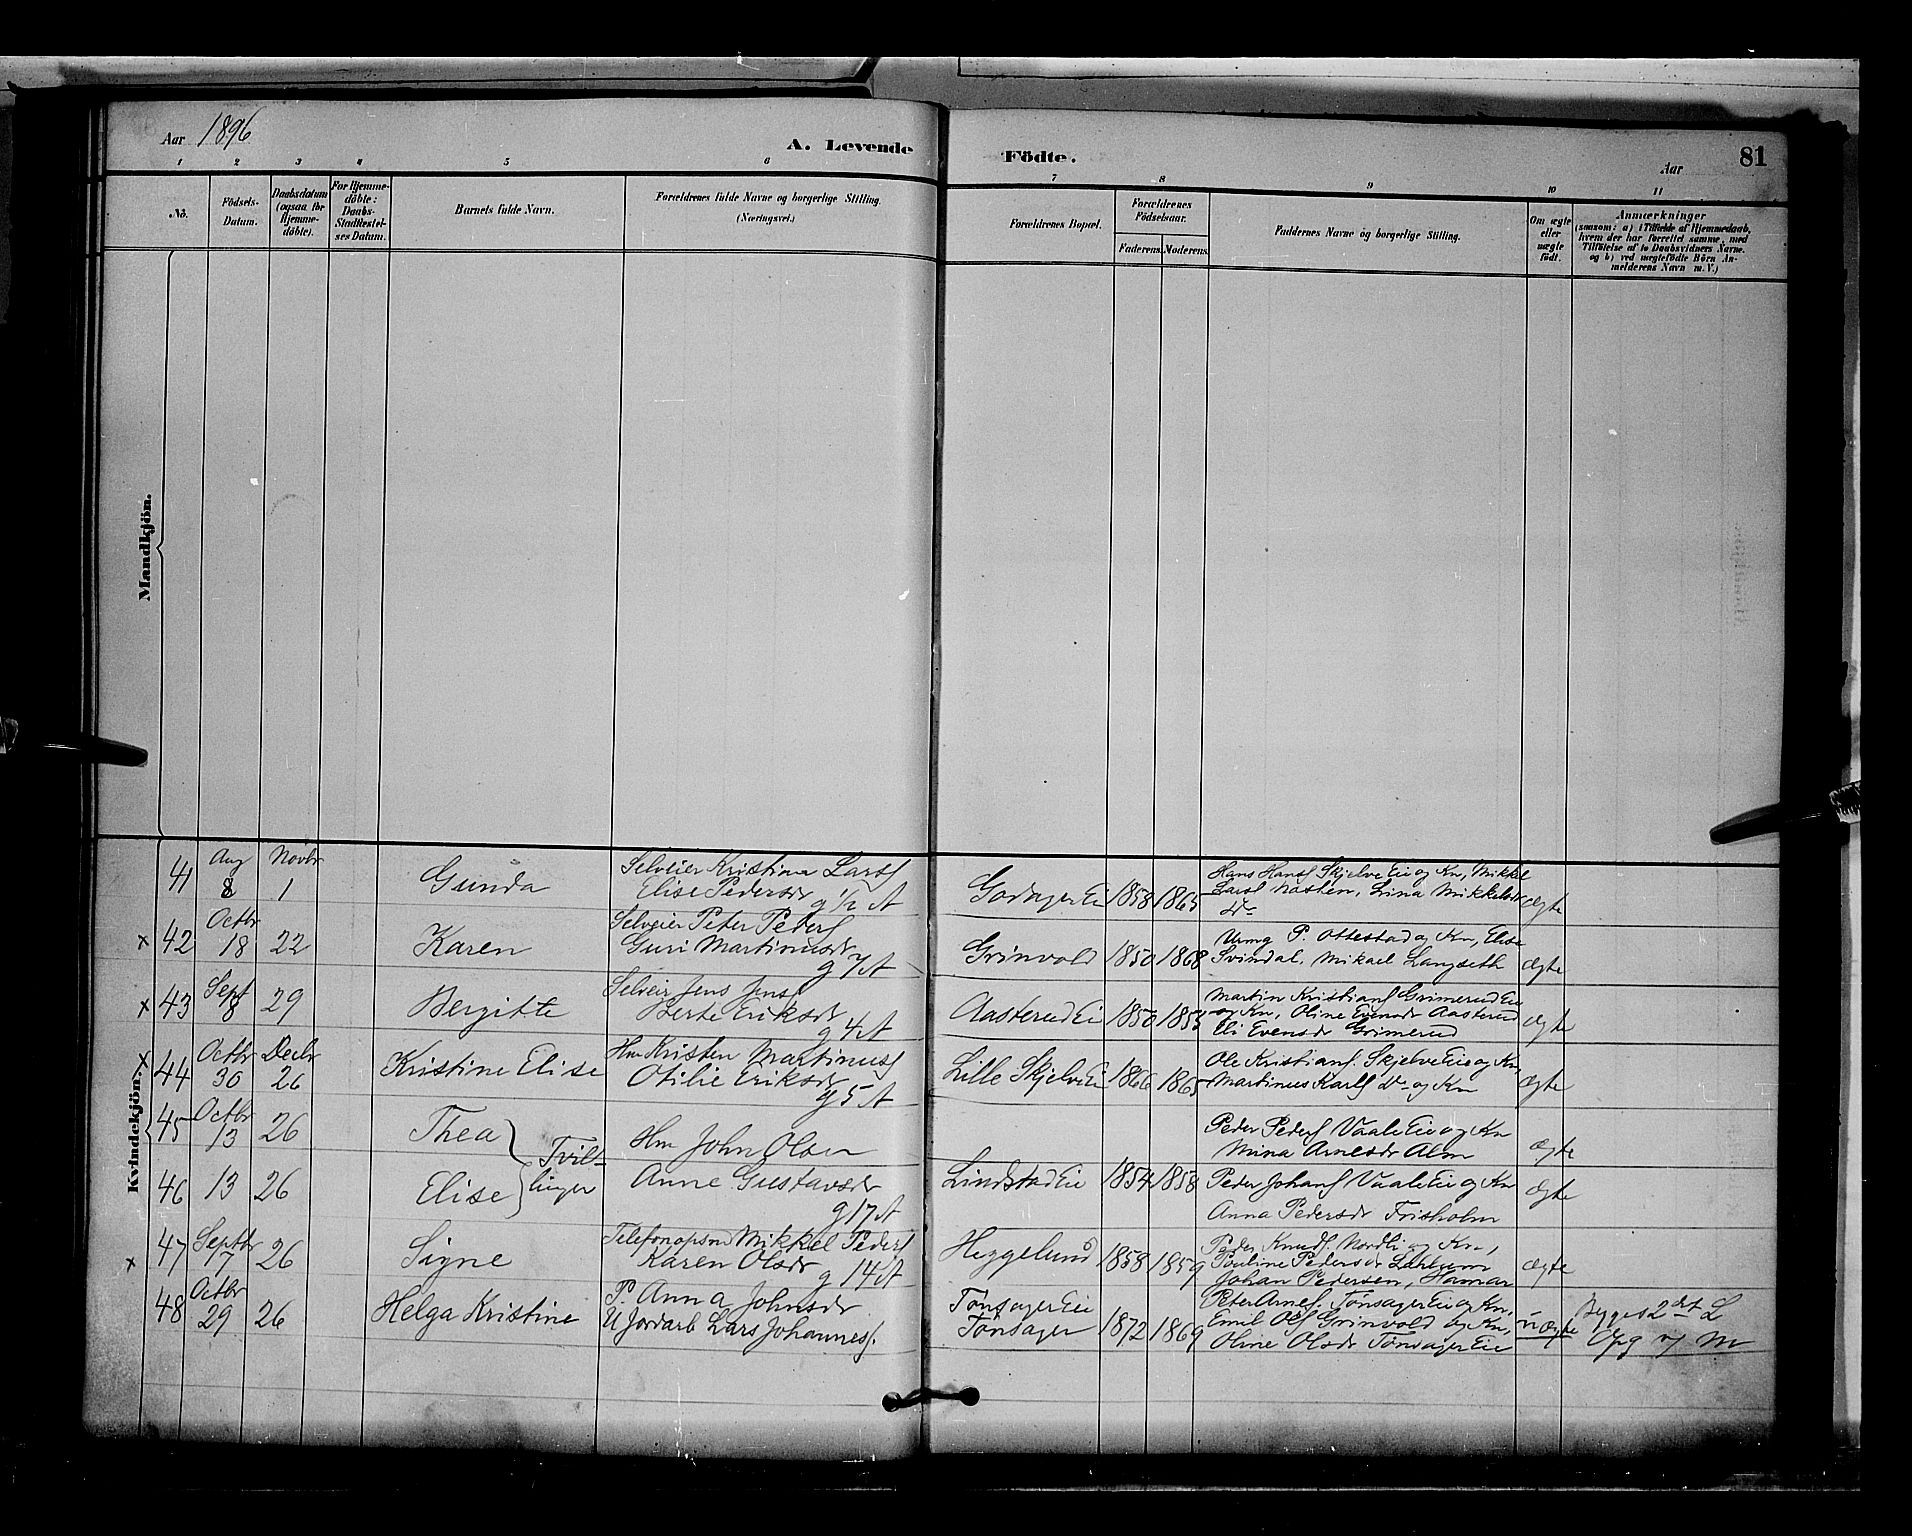 Aar 1896
A. Levende
Födte.
Aar
81
1 2 3 4 5 6 7 8 9 10 11
No.
Födsels-
Datum.
Daabsdatum
(ogsaa for
Hjemme-
döbte).
For Hjemme-
döbte:
Daabs-
Stadfæstel-
ses Datum.
Barnets fulde Navn.
Forældrenes fulde Navne og borgerlige Stilling.
(Næringsvei.)
Forældrenes Bopæl.
Forældrenes
Födselsaar.
Faderens. Moderens.
Faddernes Navne og borgerlige Stilling.
Om ægte
eller
uægte
født.
Anmærkninger
(saasom: a) i Tilfælde af Hjemmedaab,
hvem der har forrettet samme, med
Tilföielse af to Daabsvidners Navne.
og b) ved uægtefödte Börn An-
melderens Navn m. V.)
Mandkjön.
Kvindekjön.
41 Aug 8 Novbr 1 Gunda
Selveier Kristian Larsf
Elise Pedersdr g 1/2 A
Godager Ei 1858 1865
Hans Hansf Skjelve Eie og Kn, Mikkel
Larsf Nasten, Lina Mikkelsdr
Do
ægte
x 42 Octbr 18 22 Karen
Selveier Peter Pedersf
Guri Martinusdr
g 7 A
Grinvold 1850 1868
Urmg P. Ottestad og Kn, Elise
Svindal, Mikael Langseth
ægte
x 43 Sept 8 29 Bergitte
Selveier Jens Jensf
Berte Eriksdr
g 4 A
Aasterud Ei 1850 1855
Martin Kristiansf Grimerud Eie
og Kn, Oline Evensdr Aasterud
Eli Evensdr Grimerud
ægte
x 44 Octbr 30 Decbr 26 Kristine Elise
Hm Kristen Martinusf
Otilie Eriksdr
g 5 A
Lille Skjelve Ei 1866 1865
Ole Kristiansf. Skjelve Eie og Kn,
Martinus Karlsf Do og Kn
ægte
45 Octbr 13 26 Thea
Tvil-
linger
Hm John Olsen
Peder Pedersf Vaale Eie og Kn
Mina Arnesdr Alm
ægte
46 13 26 Elise
Anne Gustavsdr
g 17 A
Lindstad Eie 1854 1858
Peder Johansf Vaale Eie og Kn
Anna Pedersdr Frisholm
ægte
x 47 Septbr 17 26 Signe
Telefonopsm Mikkel Pedersf
Karen Olsdr
g 14 A
Heggelund 1858 1859
Peder Knudsf. Nordli og Kn,
Pauline Pedersdr
Johan Pedersen, Hamar
ægte
48 Octbr 29 26 Helga Kristine
P. Anna Johnsdr
U Jordarb Lars Johannesf.
Tønsager Eie
Tønsager 1872 1869
Peter Arnesf. Tønsager Eie og Kn,
Emil Olsf Grinvold og Kn,
Oline Olsdr Tønsager Eie
u-
ægte
Begges 2det L
Opg v/ M